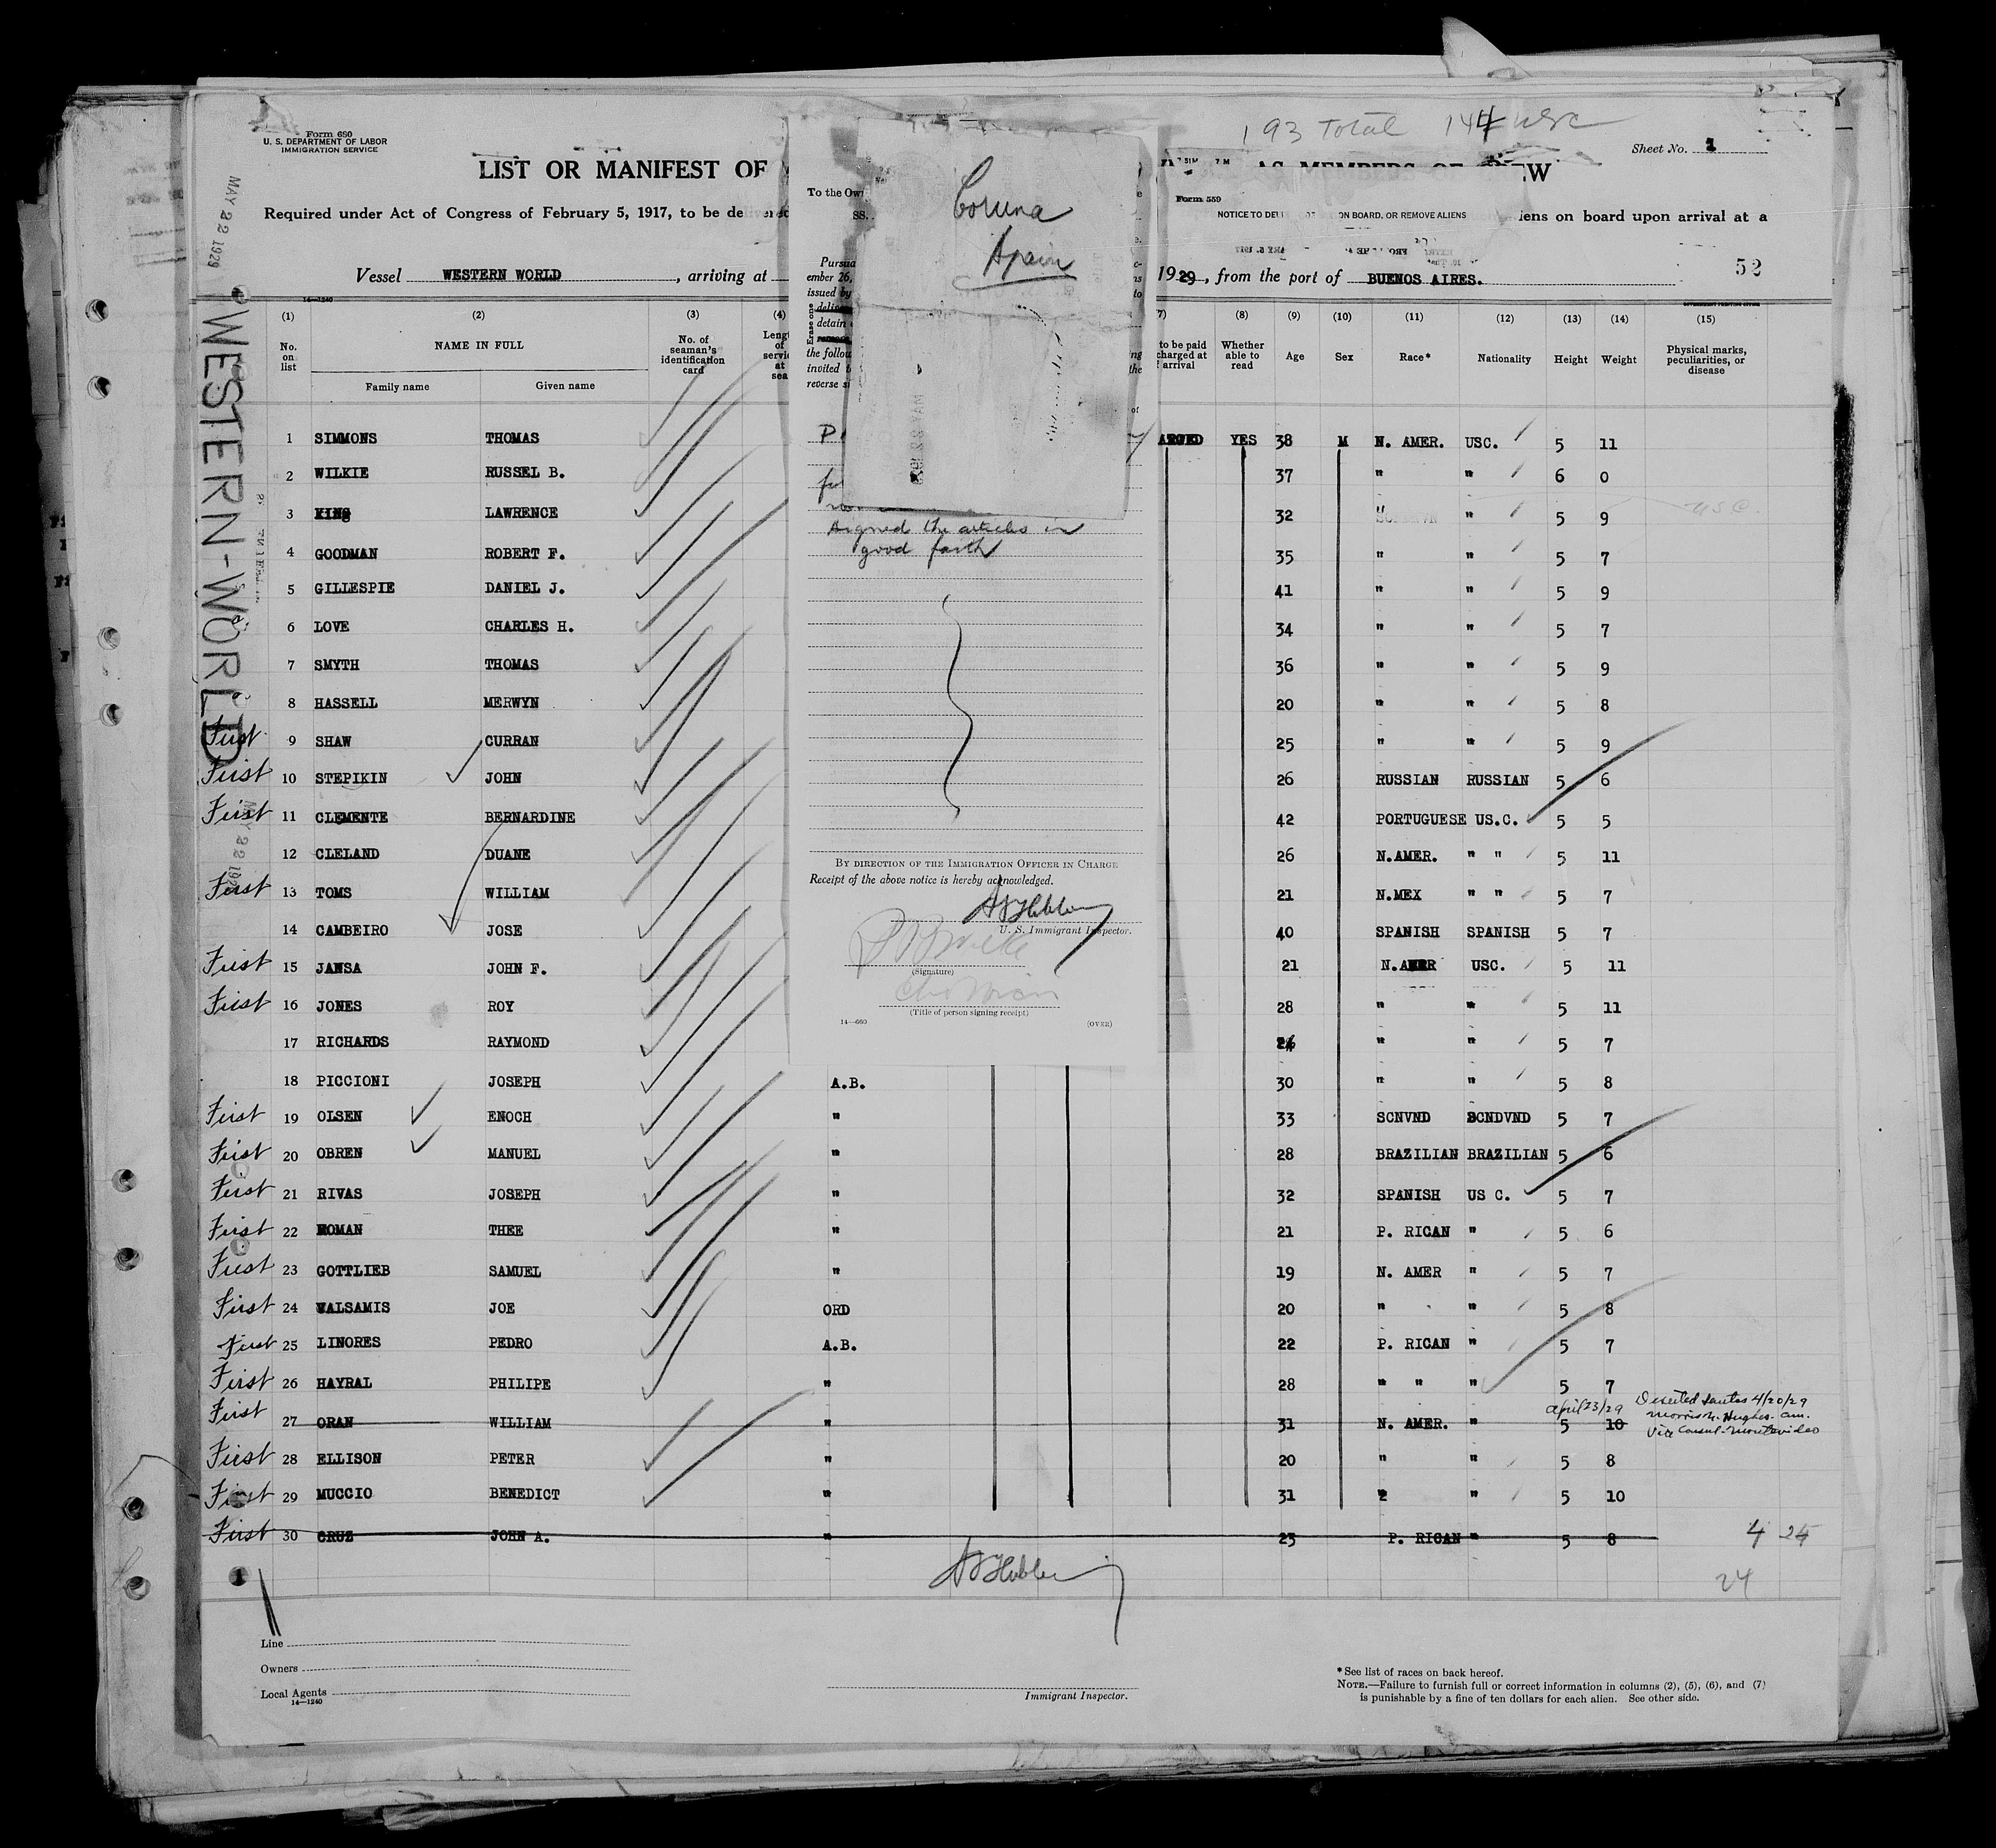 193 Total 144 usc
Form 680
U. S. DEPARTMENT OF LABOR
IMMIGRATION SERVICE
Sheet No. 1
LIST OR MANIFEST OF
AS MEMBERS OF
Required under Act of Congress of February 5, 1917, to be delivered
iens on board upon arrival at a
Vessel WESTERN WORLD, arriving at
1929, from the port of BUENOS AIRES.
52
MAY 22 1929
WESTERN-WORLD
Form 559
NOTICE TO
ON BOARD, OR REMOVE ALIENS
Coruna
Spain
To the
ember 26,
issued by
detain
invited
signed the articles in
good faith
BY DIRECTION OF THE IMMIGRATION OFFICER IN CHARGE
Receipt of the above notice is hereby acknowledged.
U. S. Immigrant Inspector.
(Signature)
(Title of person signing receipt)
14—660 (OVER)
14—1240
(1) (2) (3) (4) (8) (9) (10) (11) (12) (13) (14) (15)
No. on list
NAME IN FULL
Family name Given name
No. of seaman's identification card
to be paid
Whether able to read
Age Sex Race* Nationality Height Weight
Physical marks, peculiarities, or disease
1 SIMMONS THOMAS YES 38 M N. AMER. USC. 5 11
2 WILKIE RUSSEL B. 37 " " 6 0
3 KING LAWRENCE 32 " " 5 9 USC.
4 GOODMAN ROBERT F. 35 " " 5 7
5 GILLESPIE DANIEL J. 41 " " 5 9
6 LOVE CHARLES H. 34 " " 5 7
7 SMYTH THOMAS 36 " " 5 9
8 HASSELL MERWYN 20 " " 5 8
First 9 SHAW CURRAN 25 " " 5 9
First 10 STEPIKIN JOHN 26 RUSSIAN RUSSIAN 5 6
First 11 CLEMENTE BERNARDINE 42 PORTUGUESE US.C. 5 5
12 CLELAND DUANE 26 N.AMER. " " 5 11
First 13 TOMS WILLIAM 21 N.MEX " " 5 7
14 CAMBEIRO JOSE 40 SPANISH SPANISH 5 7
First 15 JANSA JOHN F. 21 N.AMER USC. 5 11
First 16 JONES ROY 28 " " 5 11
17 RICHARDS RAYMOND " " 5 7
18 PICCIONI JOSEPH A.B. 30 " " 5 8
First 19 OLSEN ENOCH " 33 SCNVND SCNDVND 5 7
First 20 OBREN MANUEL " 28 BRAZILIAN BRAZILIAN 5 6
First 21 RIVAS JOSEPH " 32 SPANISH US C. 5 7
First 22 ROMAN THEE " 21 P. RICAN " 5 6
First 23 GOTTLIEB SAMUEL " 19 N. AMER " 5 7
First 24 VALSAMIS JOE ORD 20 " " 5 8
First 25 LINORES PEDRO A.B. 22 P. RICAN " 5 7
First 26 HAYRAL PHILIPE " 28 " " " 5 7
April 23/29 Deserted Santos 4/20/29
Morris N. Hughes. Am.
Vice Consul-Montevideo
First 27 ORAN WILLIAM " 31 N. AMER. " 5 10
First 28 ELLISON PETER " 20 " " 5 8
First 29 MUCCIO BENEDICT " 31 " 5 10
First 30 CRUZ JOHN A. " 23 P. RICAN " 5 8
4 24
24
Line
Owners
Local Agents
14—1240
Immigrant Inspector.
*See list of races on back hereof.
NOTE.—Failure to furnish full or correct information in columns (2), (5), (6), and (7)
is punishable by a fine of ten dollars for each alien. See other side.